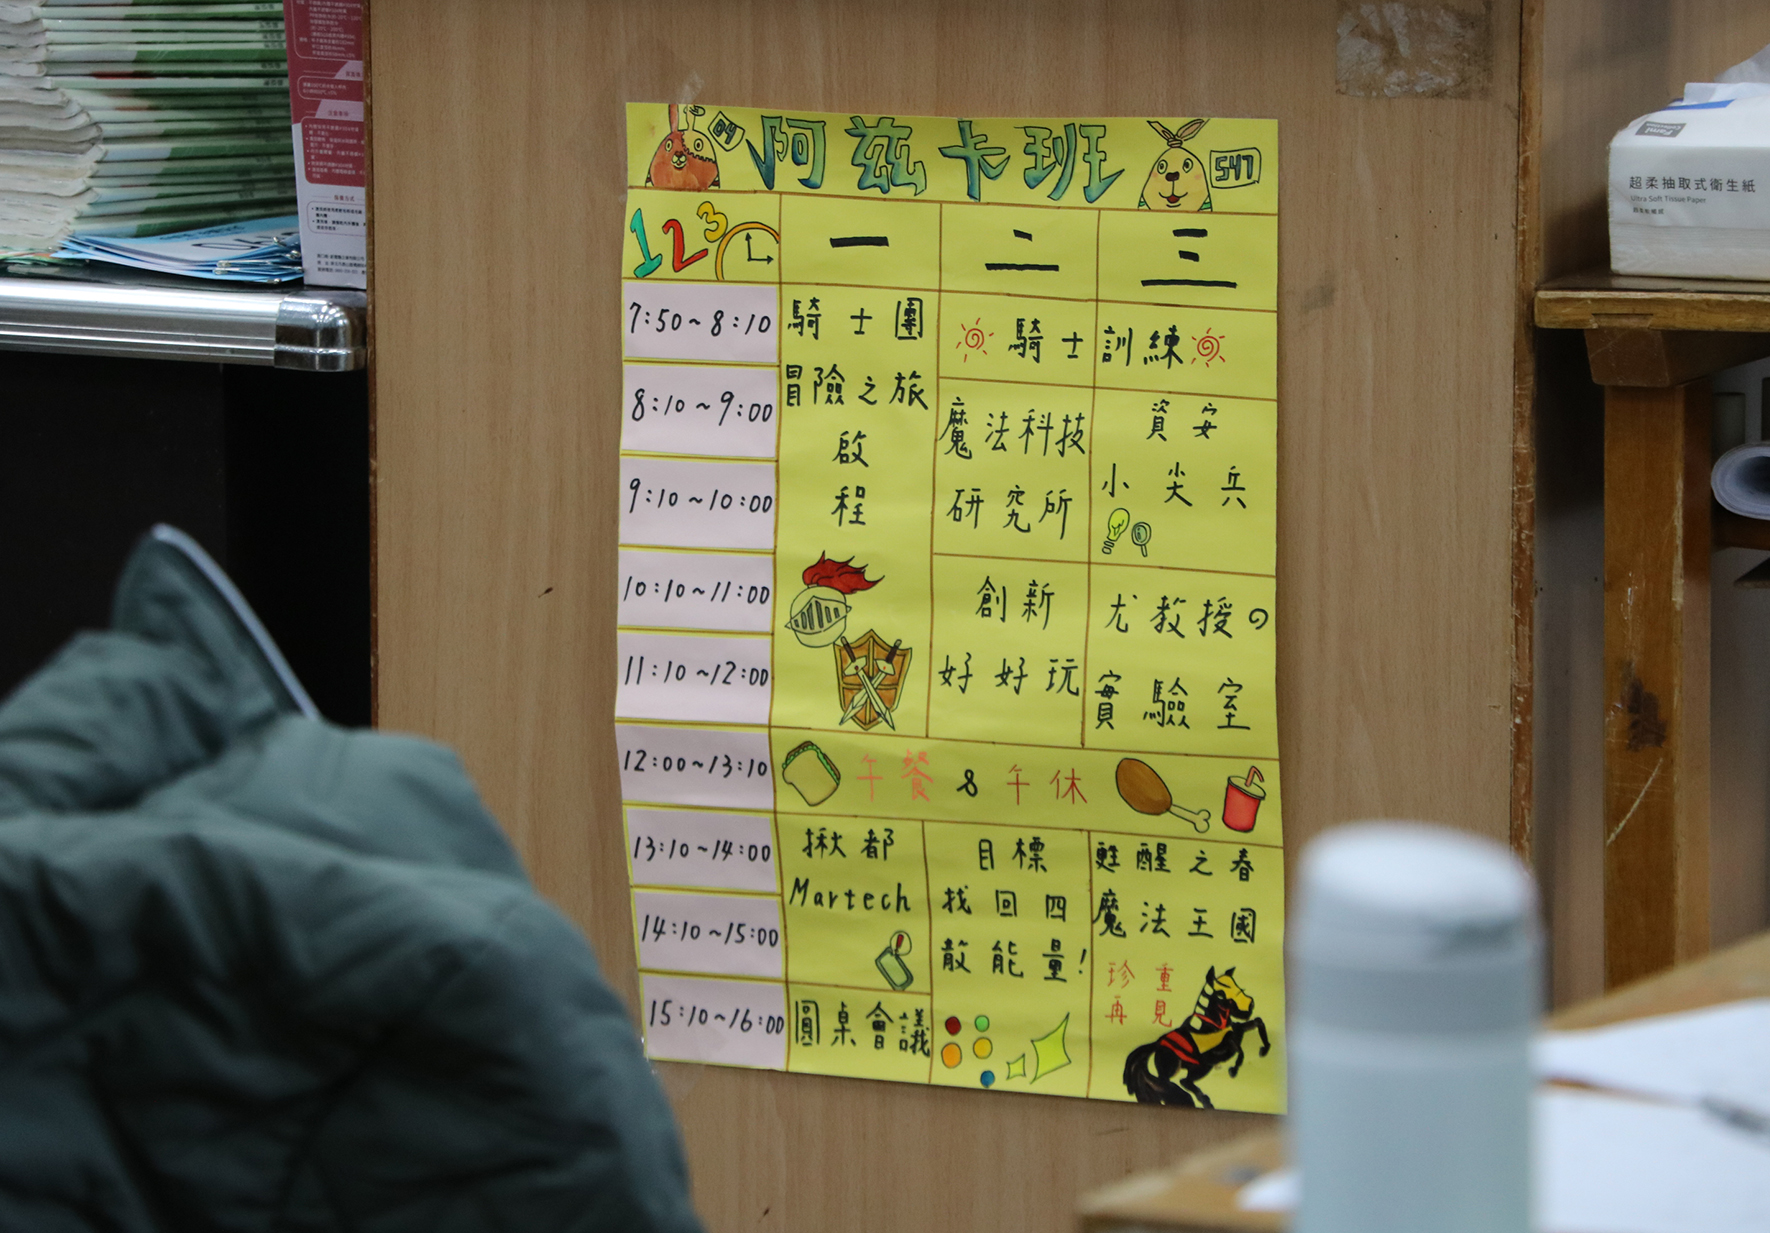 04
阿兹卡班
547
123
一
二
三
7:50~8:10
8:10~9:00
9:10~10:00
10:10~11:00
11:10~12:00
12:00~13:10
13:10~14:00
14:10~15:00
15:10~16:00
騎士團
冒險之旅
啟
程
騎士訓練
魔法科技
研究所
資安
小尖兵
創新
好好玩
尤教授の
實驗室
午餐&午休
揪都
Martech
圓桌會議
目標
找回四
散能量!
甦醒之春
魔法王國
珍重
再見
超柔抽取式衛生紙
Ultra Soft Tissue Paper